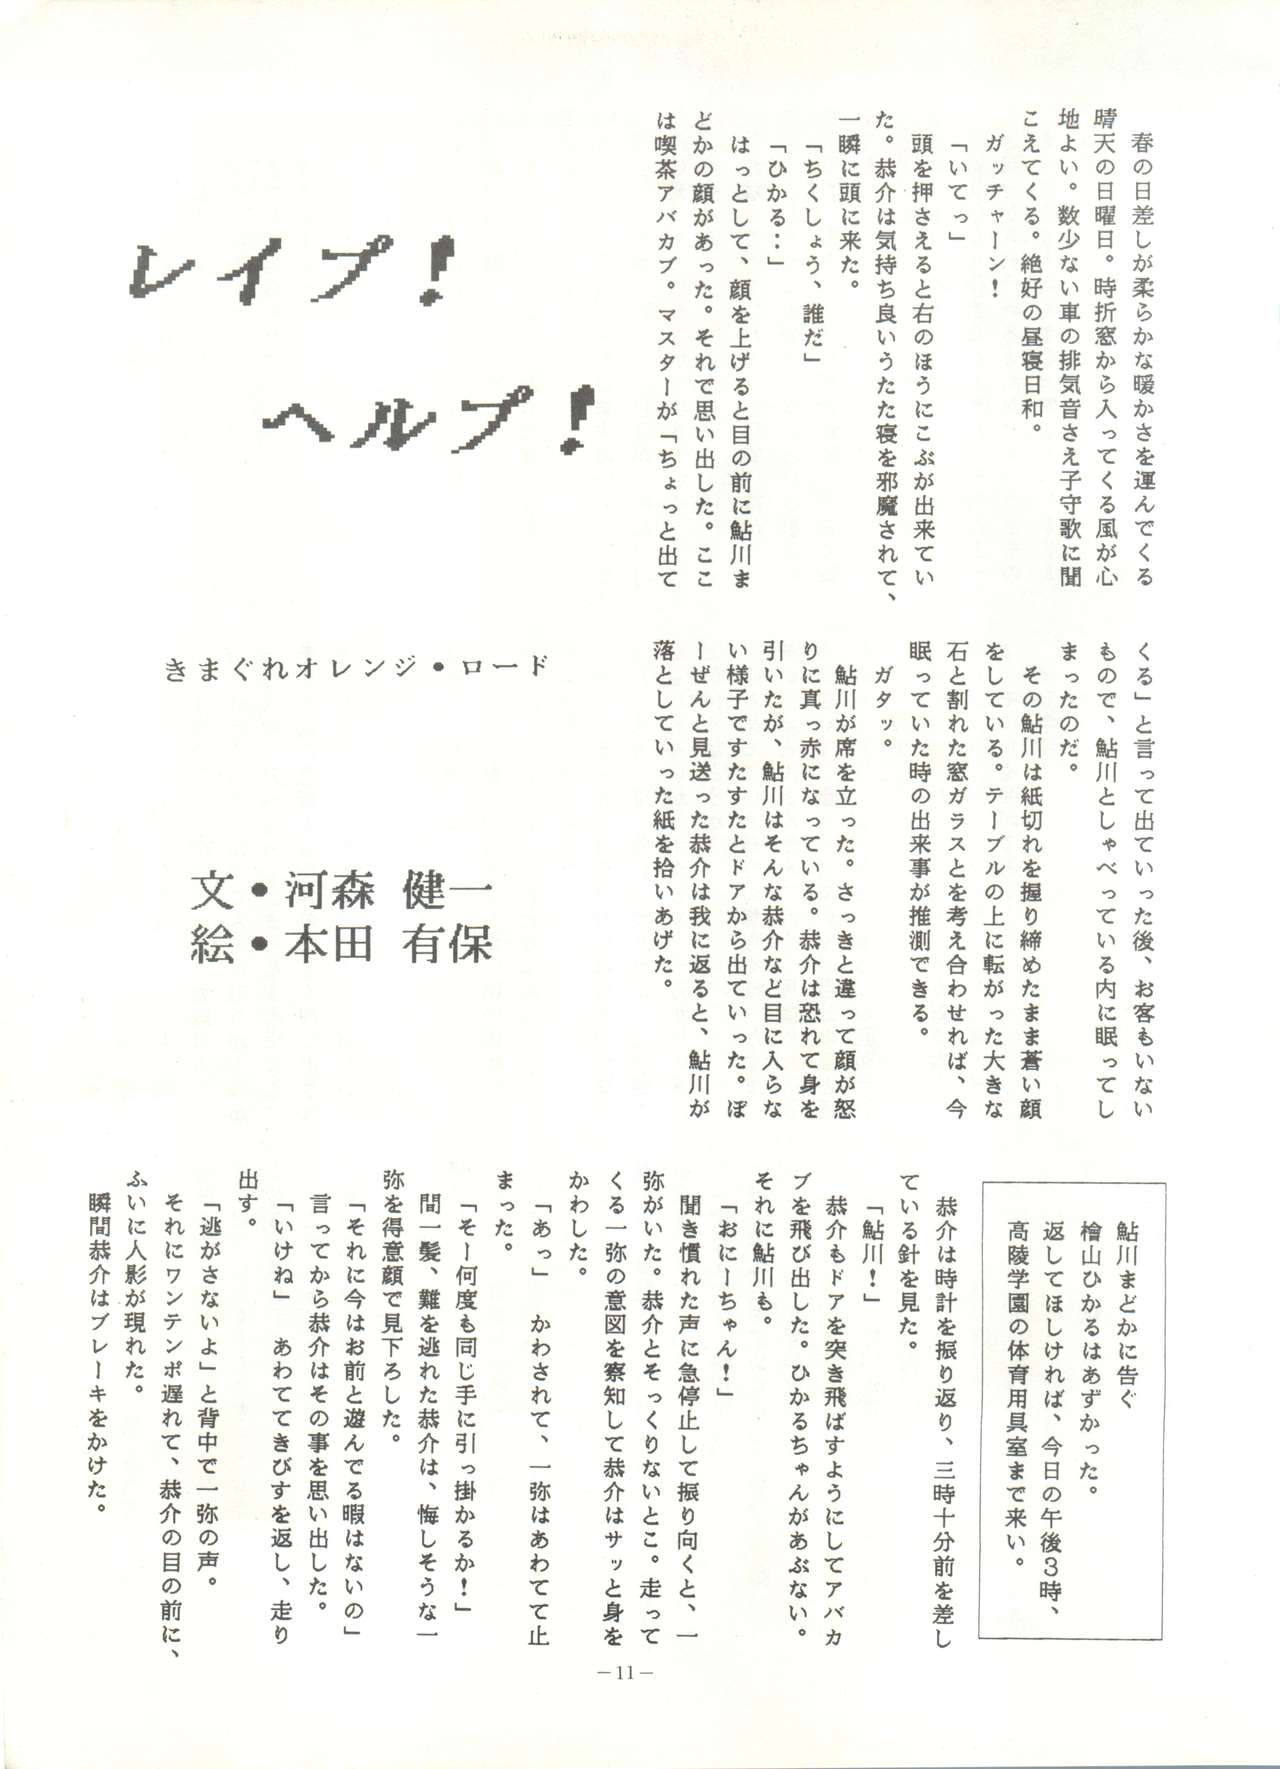 レイプ！
ヘルプ！
きまぐれオレンジ・ロード
文・河森 健一
絵・本田 有保
春の日差しが柔らかな暖かさを運んでくる
晴天の日曜日。時折窓から入ってくる風が心
地よい。数少ない車の排気音さえ子守歌に聞
こえてくる。絶好の昼寝日和。
ガッチャーン！
「いてっ」
頭を押さえると右のほうにこぶが出来てい
た。恭介は気持ち良いうたた寝を邪魔されて、
一瞬に頭に来た。
「ちくしょう、誰だ」
「ひかる‥」
はっとして、顔を上げると目の前に鮎川ま
どかの顔があった。それで思い出した。ここ
は喫茶アバカブ。マスターが「ちょっと出て
くる」と言って出ていった後、お客もいない
もので、鮎川としゃべっている内に眠ってし
まったのだ。
その鮎川は紙切れを握り締めたまま蒼い顔
をしている。テーブルの上に転がった大きな
石と割れた窓ガラスとを考え合わせれば、今
眠っていた時の出来事が推測できる。
ガタッ。
鮎川が席を立った。さっきと違って顔が怒
りに真っ赤になっている。恭介は恐れて身を
引いたが、鮎川はそんな恭介など目に入らな
い様子ですたすたとドアから出ていった。ぼ
ーぜんと見送った恭介は我に返ると、鮎川が
落としていった紙を拾いあげた。
鮎川まどかに告ぐ
檜山ひかるはあずかった。
返してほしければ、今日の午後3時、
高陵学園の体育用具室まで来い。
恭介は時計を振り返り、三時十分前を差し
ている針を見た。
「鮎川！」
恭介もドアを突き飛ばすようにしてアバカ
ブを飛び出した。ひかるちゃんがあぶない。
それに鮎川も。
「おにーちゃん！」
聞き慣れた声に急停止して振り向くと、一
弥がいた。恭介とそっくりないとこ。走って
くる一弥の意図を察知して恭介はサッと身を
かわした。
「あっ」　かわされて、一弥はあわてて止
まった。
「そー何度も同じ手に引っ掛かるか！」
間一髪、難を逃れた恭介は、悔しそうな一
弥を得意顔で見下ろした。
「それに今はお前と遊んでる暇はないの」
言ってから恭介はその事を思い出した。
「いけね」　あわててきびすを返し、走り
出す。
「逃がさないよ」と背中で一弥の声。
それにワンテンポ遅れて、恭介の目の前に、
ふいに人影が現れた。
瞬間恭介はブレーキをかけた。
－11－